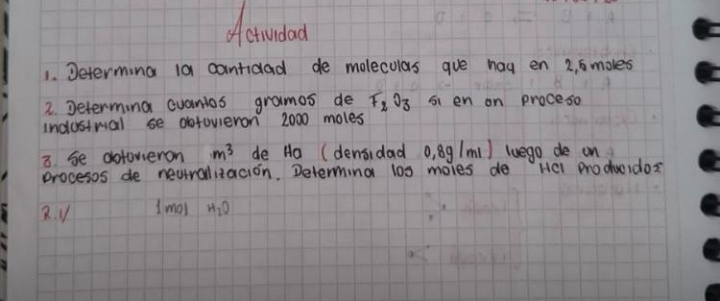 Actividad
1. Determina la cantidad de moleculas que hay en 2,5 moles
2. Determina cuantos gramos de F₂O₃ si en on proceso
industrial se obtuvieron 2000 moles
3. Se obtovieron m³ de Ha (densidad 0,8g/ml) luego de un
procesos de neutralización. Determina los moles de HCl producidos
R.1/ 1mol H₂O